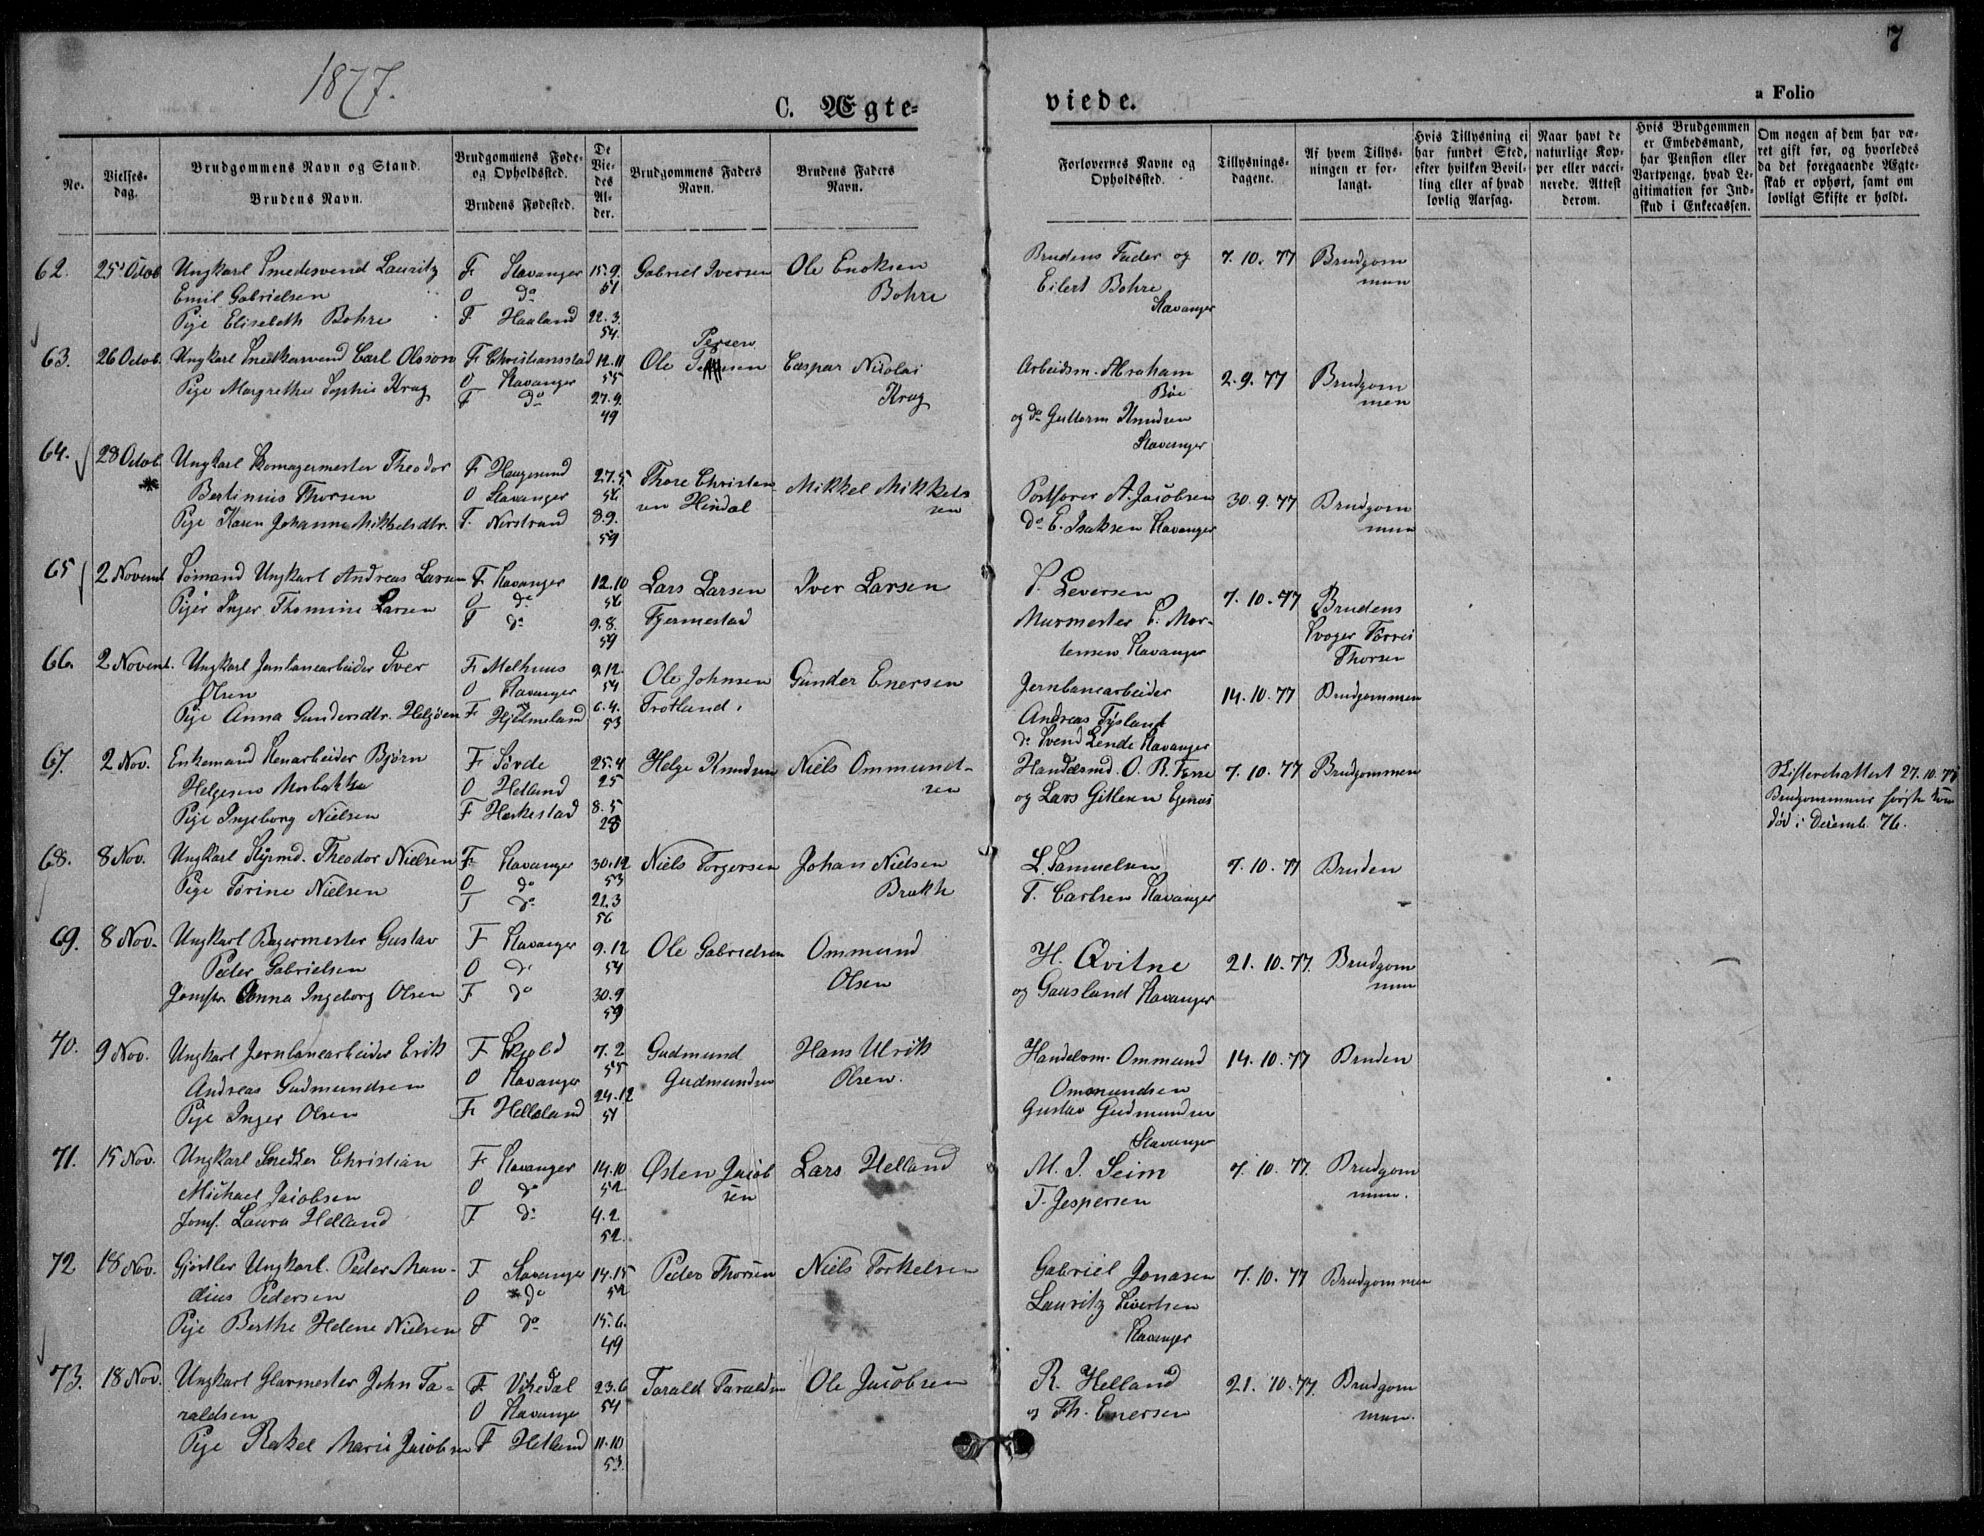 1877.
7
C. Ægte-
viede.
a Folio
No.
Vielses-
dag.
Brudgommens Navn og Stand.
Brudens Navn.
Brudgommens Føde-
og Opholdssted.
Brudens Fødested.
De
Vie-
des
Al-
der.
Brudgommens Faders
Navn.
Brudens Faders
Navn.
Forlovernes Navne og
Opholdssted.
Tillysnings-
dagene.
Af hvem Tillys-
ningen er for-
langt.
Hvis Tillysning ei
har fundet Sted,
efter hvilken Bevil-
ling eller af hvad
lovlig Aarsag.
Naar havt de
naturlige Kop-
per eller vacci-
nerede. Attest
derom.
Hvis Brudgommen
er Embedsmand,
har Pension eller
Vartpenge, hvad Le-
gitimation for Ind-
skud i Enkecassen.
Om nogen af dem har væ-
ret gift før, og hvorledes
da det foregaaende Ægte-
skab er ophørt, samt om
lovligt Skifte er holdt.
62. 25 Octob Ungkarl Smedesvend Lauritz F. Stavanger 15.9. Gabriel Iversen Ole Enoksen Brudens Fader og 7.10.77 Brudgom
Emil Gabrielsen O do 51 Bohre Eilert Bohre men
Pige Elisebeth Bohre F. Haaland 22.3. Stavanger
54.
63. 26 Octob. Ungkarl Snedkersvend Carl Olsson F. Christiansstad 12.11 Ole Persen Caspar Nicolai Arbeidsm. Abraham 2.9.77 Brudgom
Pige Margrethe Sophie Krag O Stavanger 55 Krag Bøe men
F do 27.9. og do Guttorm Knudsen
49 Stavanger
64. 28 Octob. Ungkarl Skomagermester Theodor F. Haugesund 27.5 Thore Christen Mikkel Mikkels Postfører A. Jacobsen 30.9.77 Brudgom
Bertinius Thorsen O Stavanger 56 sen Hindal sen do E. Isaksen Stavanger men
Pige Karen Johanne Mikkelsdtr. F. Nerstrand 8.9.
59
65 2 Novemb. Sømand Ungkarl Andreas Larsen F. Stavanger 12.10 Lars Larsen Iver Larsen Leversen 7.10.77 Brudens
Pige Inger Thomine Larsen O do 56 Tjermestad Murmester Mor- Svoger
F do 9.8. tensen Stavanger Thorsen
59
66. 2 Novemb. Ungkarl Jernbanearbeider Iver F. Melhuus 9.12. Ole Johnsen Gunder Enersen Jernbanearbeider 14.10.77 Brudgommen
Olsen O Stavanger 54 Trotland Andreas Tysland
Pige Anna Gundersdtr. Helgøen F. Hjelmeland 6.4. do Svend Lende Stavanger
53
67. 2 Nov. Enkemand Stenarbeider Bjørn F. Sørde 25.4. Helge Knudsen Niels Ommund- Handelsmd. O. R. 7.10.77 Brudgommen Skifteretsattest 27.10.77
Helgesen O Hetland 25 sen og Lars Gitlesen Egenæs Brudgommens første Kone
Pige Ingeborg Nielsen F. Heskestad 8.5 død i Decemb. 76.
28
68. 8 Nov. Ungkarl Styrmd. Theodor Nielsen F. Stavanger 30.12 Niels Torgersen Johan Nielsen L. Samuelsen 7.10.77 Bruden
Pige Torine Nielsen O do 53 Brakh T. Carlsen Stavanger
F do 22.3
56
69. 8 Nov. Ungkarl Bagermester Gustav F. Stavanger 9.12 Ole Gabrielsen Ommund H. Qvitne 21.10.77 Brudgom
Peder Gabrielsen O do 54 Olsen og Gausland Stavanger men
Jomfr. Anna Ingeborg Olsen F do 30.9
59
70. 9 Nov. Ungkarl Jernbanearbeider Erik F. Skjold 7.2 Gudmund Hans Ulrik Handelsm. Ommund 14.10.77 Bruden
Andreas Gudmundsen O Stavanger 55 Gudmundsen Olsen. Ommundsen
Pige Inger Olsen F. Helleland 24.12 Gustav Gudmundsen
51 Stavanger
71. 15 Nov. Ungkarl Snedker Christian F. Stavanger 14.10 Østen Jacob Lars Helland M. J. Seim 7.10.77 Brudgom
Michael Jacobsen O do 52 sen T. Jespersen men.
Jomf. Laura Helland F. do 4.2.
52.
72 18 Nov. Gjørtler Ungkarl. Peder Man- F. Stavanger 14.15 Peder Thorsen Niels Torkelsen Gabriel Jonasen 7.10.77 Brudgommen
dius Pedersen O do 52 Lauritz Sivertsen
Pige Berthe Helene Nielsen F do 15.6. Stavanger
49
73. 18 Nov. Ungkarl Glarmester John Ta- F. Vikedal 23.6 Tarald Taraldsen Ole Jacobsen R. Helland 21.10.77 Brudgom
raldsen O Stavanger 54 og Th. Enersen men.
Pige Rakel Marie Jacobsen F Hetland 11.10
53.